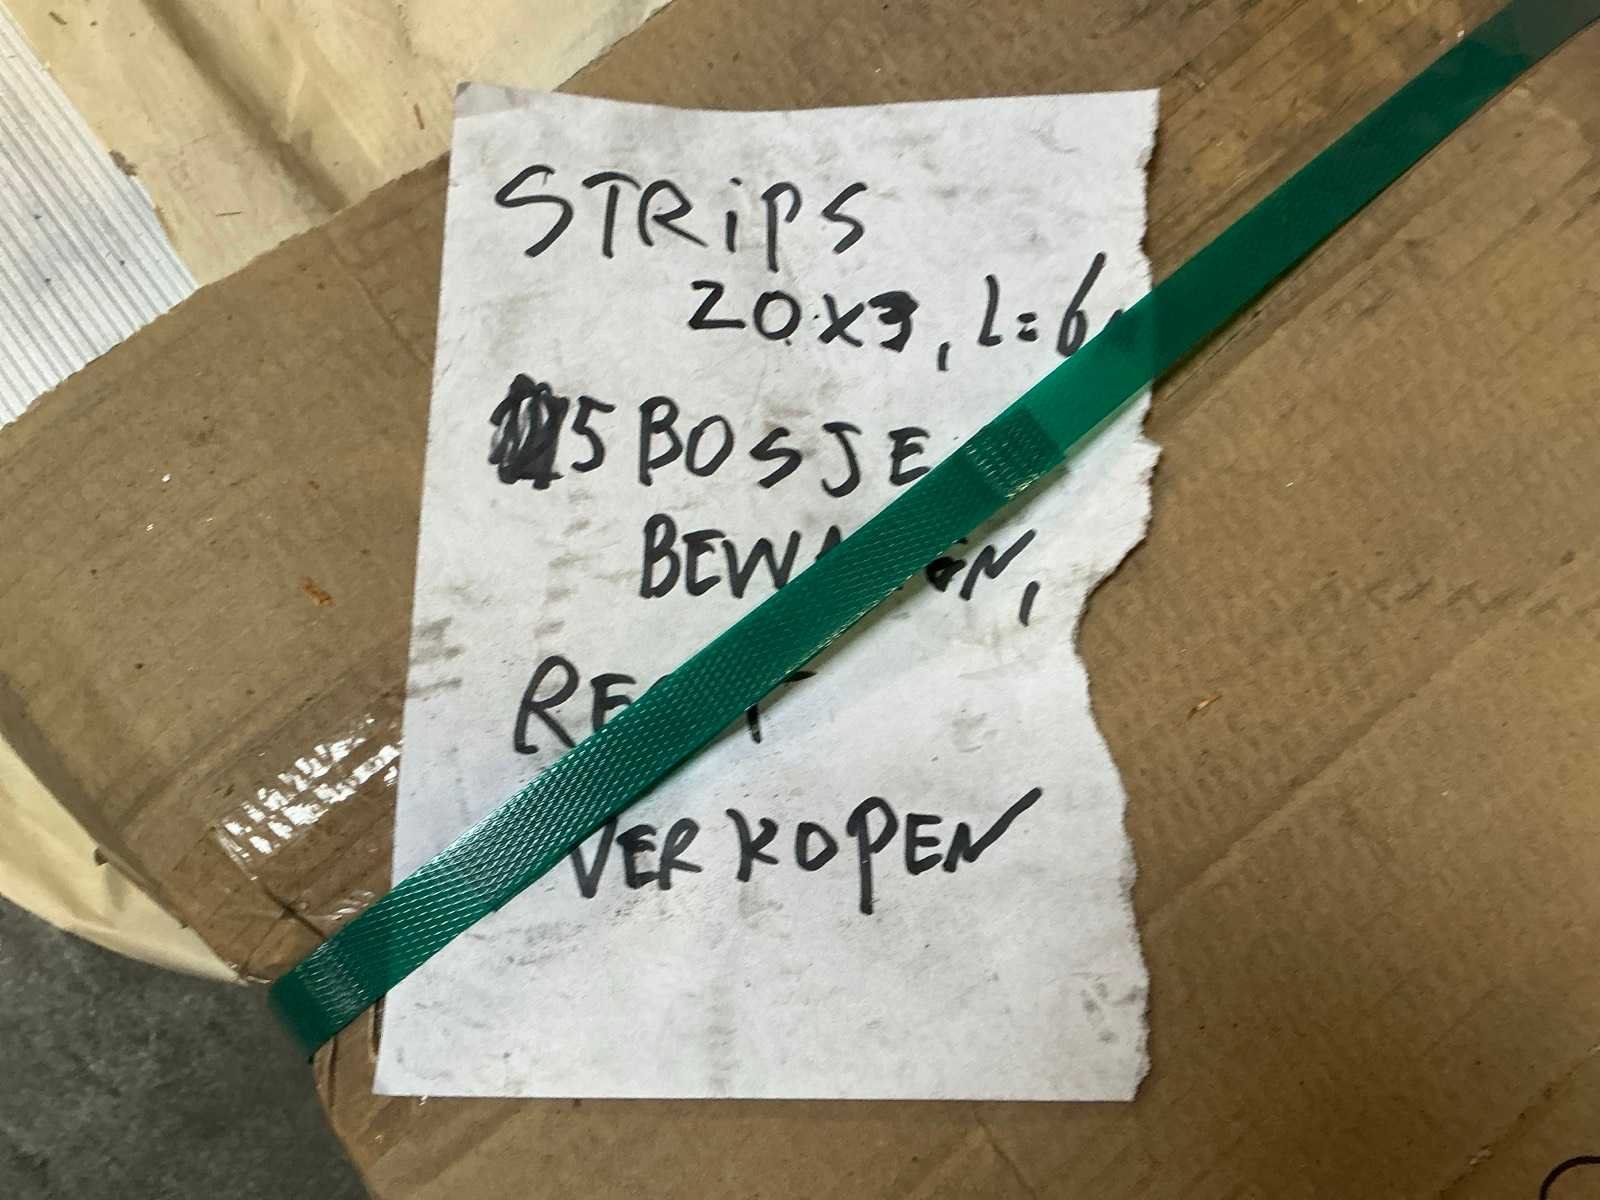 STRiPS
20x3, L=6
5 BOSJE
BEWAREN,
REST
VERKOPEN